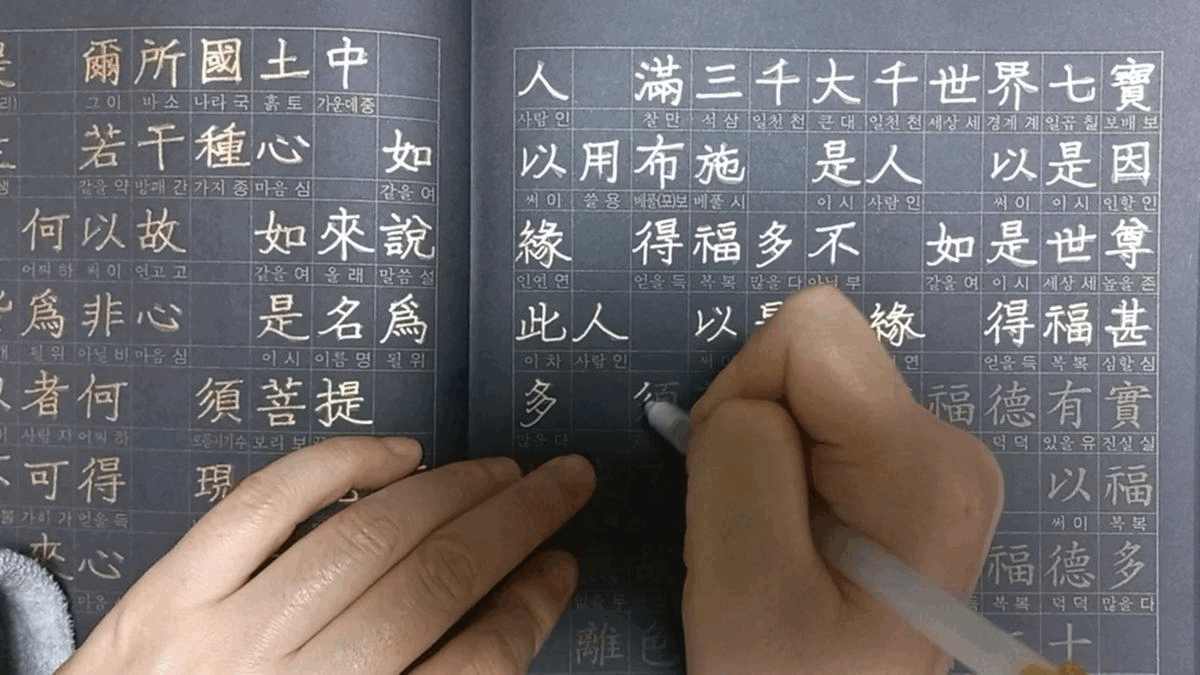 爾 所 國 土 中
그 이 바 소 나라 국 흙 토 가운데 중
若 干 種 心 如
같을 약 방패 간 가지 종 마음 심 같을 여
何 以 故 如 來 說
어찌 하 써 이 연고 고 같을 여 올 래 말씀 설
爲 非 心 是 名 爲
될 위 아닐 비 마음 심 이 시 이름 명 될 위
者 何 須 菩 提
사람 자 어찌 하 모름지기 수 보리 보
可 得 現
불 가히 가 얻을 득
來 心
마음
人 滿 三 千 大 千 世 界 七 寶
사람 인 찰 만 석 삼 일천 천 큰 대 일천 천 세상 세 경계 계 일곱 칠 보배 보
以 用 布 施 是 人 以 是 因
써 이 쓸 용 베풀(포)보 베풀 시 이 시 사람 인 써 이 이 시 인할 인
緣 得 福 多 不 如 是 世 尊
인연 연 얻을 득 복 복 많을 다 아닐 부 같을 여 이 시 세상 세 높을 존
此 人 以 緣 得 福 甚
이 차 사람 인 써 연 얻을 득 복 복 심할 심
多 須 福 德 有 實
많을 다 덕 덕 있을 유 진실 실
以 福
써 이 복 복
無 福 德 多
복 복 덕 덕 많을 다
離 色 十